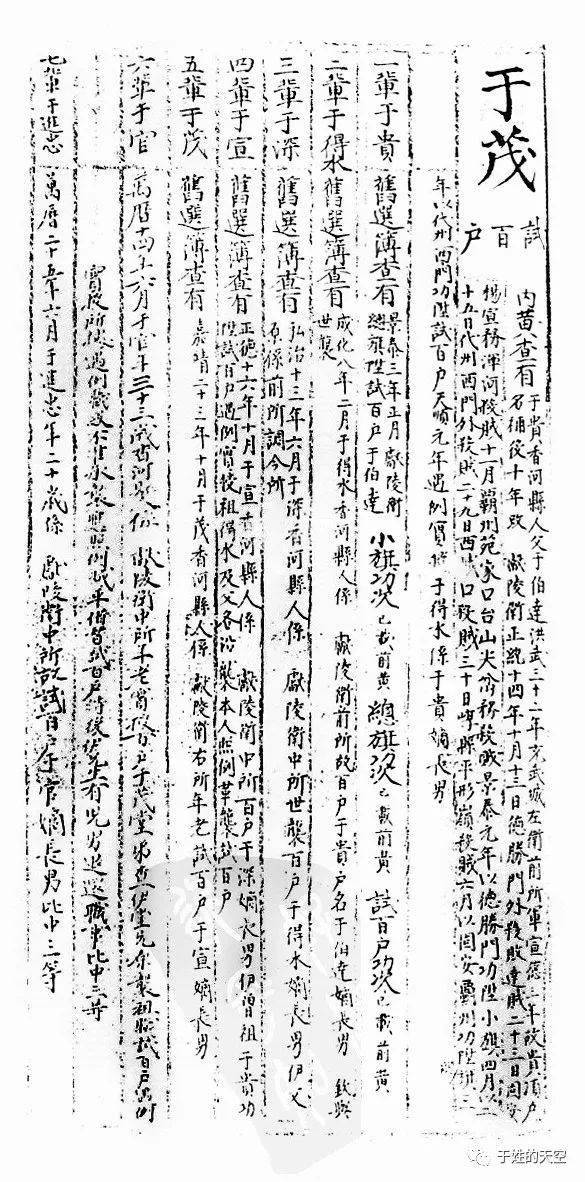 于茂
試百户
内黄查有
于貴香河縣人父于伯達洪武三十二年充武城左衛前所軍宣德二年故貴頂户
名補役十年改 獻陵衛正統十四年十月十三日德勝門外殺敗達賊二十三日固安
楊宣務渾河殺賊十一月霸州苑家口台山尖岔務殺賊景泰元年以德勝門功陞小旗四月以
十五日代州西門外殺賊二十九日西 口殺賊三十日崞縣平形嶺殺賊六月以固安霸州功陞
年以代州西門功陞試百户天順元年遇例實授于得水係于貴嫡長男
一輩于貴
舊選簿查有
景泰三年正月獻陵衛
總旗陞試百户于伯達
小旗功次
已載前黄
總旗功次
已載前黄
試百户功次
已載前黄
二輩于得水
舊選簿查有
成化八年二月于得水香河縣人係 獻陵衛前所故百户于貴户名于伯達嫡長男 欽與
世襲
三輩于深
舊選簿查有
弘治十三年六月于深香河縣人係 獻陵衛中所世襲百户于得水嫡長男伊父
原係前所調今所
四輩于宣
舊選簿查有
正德十六年十月于宣香河縣人係 獻陵衛中所百户于深嫡長男伊曾祖于貴功
陞試百户遇例實授祖得水及父各沿襲本人照例革襲試百户
五輩于茂
舊選簿查有
嘉靖二十三年十月于茂香河縣人係 獻陵衛右所年老試百户于宣嫡長男
六輩于官
萬曆十四年六月于官年三十三歲香河縣人係 獻陵衛中所年老 百户于茂堂
實授所據遇例 試百户 有兒男退還職事比中三等
七輩于進忠
萬曆二十五年六月于進忠年二十歲係 獻陵衛中所故試百户于官嫡長男比中三等
于姓的天空